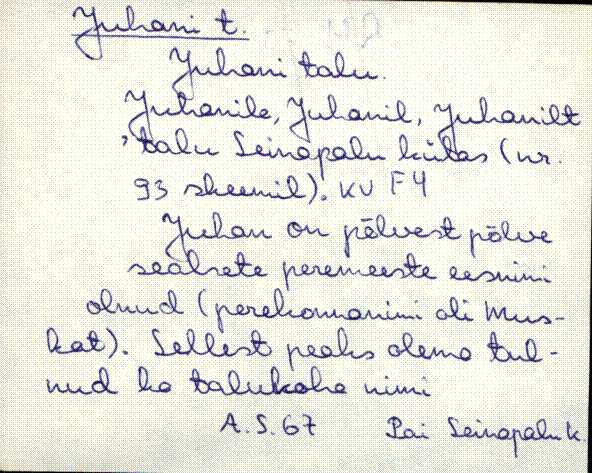 Juhani t.
Juhani talu.
Juhanile, Juhanil, Juhanilt
, talu Seinapalu külas (nr.
93 skeemil). KV F4
Juhan on põlvest põlve
sealsete peremeeste eesnimi
olnud (perekonnanimi oli Mus-
kat). Sellest peaks olema tul-
nud ka talukoha nimi
A. S. 67 Pai Seinapalu k.